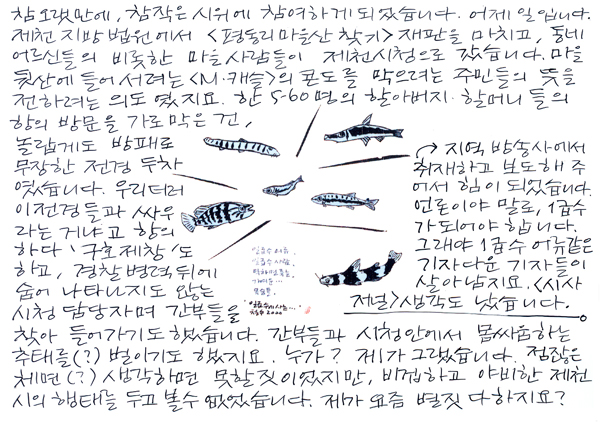 참 오랫만에, 참 작은 시위에 참여하게 되었습니다. 어제 일입니다.
제천 지방 법원에서 <평동리 마을산 찾기> 재판을 마치고, 동네
어르신들을 비롯한 마을사람들이 제천시청으로 갔습니다. 마을
뒷산에 들어서려는 <M·캐슬>의 콘도를 막으려는 주민들의 뜻을
전하려는 의도였지요. 한 5-60명의 할아버지·할머니들의
항의 방문을 가로막은 건,
놀랍게도 방패로
무장한 전경 두차
였습니다. 우리더러
이 전경들과 싸우
라는 거냐고 항의
하다 '구호제창'도
하고, 경찰병력 뒤에
숨어 나타나지도 않는
시청 담당자며 간부들을
찾아 들어가기도 했습니다. 간부들과 시청안에서 몸싸움하는
추태를(?) 벌이기도 했지요. 누가? 제가 그랬습니다. 점잖은
체면(?) 생각하면 못할 짓이었지만, 비겁하고 야비한 제천
시의 행태를 두고 볼 수 없었습니다. 제가 요즘 별짓 다하지요?
→ 지역 방송사에서
취재하고 보도해 주
어서 힘이 되었습니다.
언론이야 말로, 1급수
가 되어야 합니다.
그래야 1급수 어류같은
기자다운 기자들이
살아남지요. <시사
저널> 생각도 났습니다.